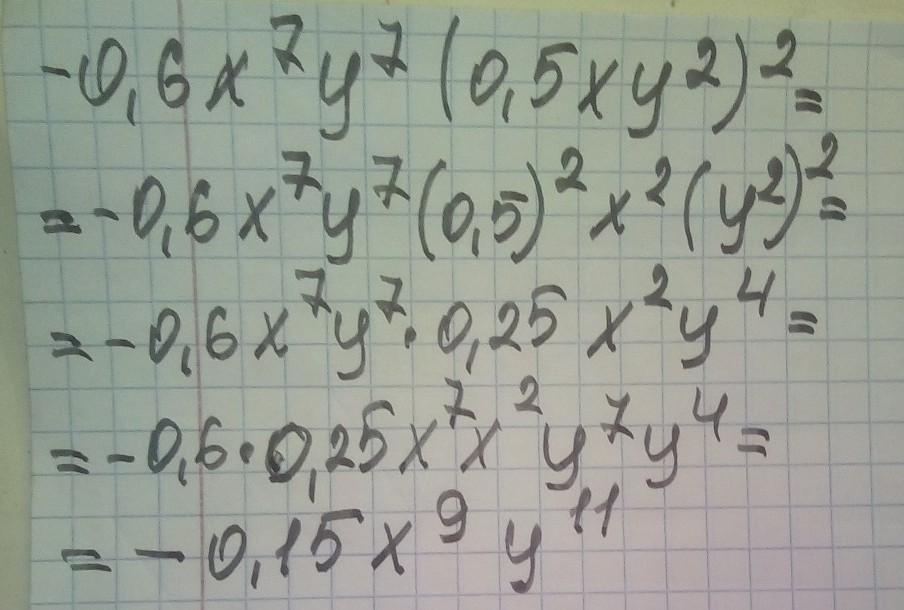 -0,6x⁷y⁷(0,5xy²)²=
=-0,6x⁷y⁷(0,5)²x²(y²)²=
=-0,6x⁷y⁷·0,25x²y⁴=
=-0,6·0,25x⁷x²y⁷y⁴=
=-0,15x⁹y¹¹